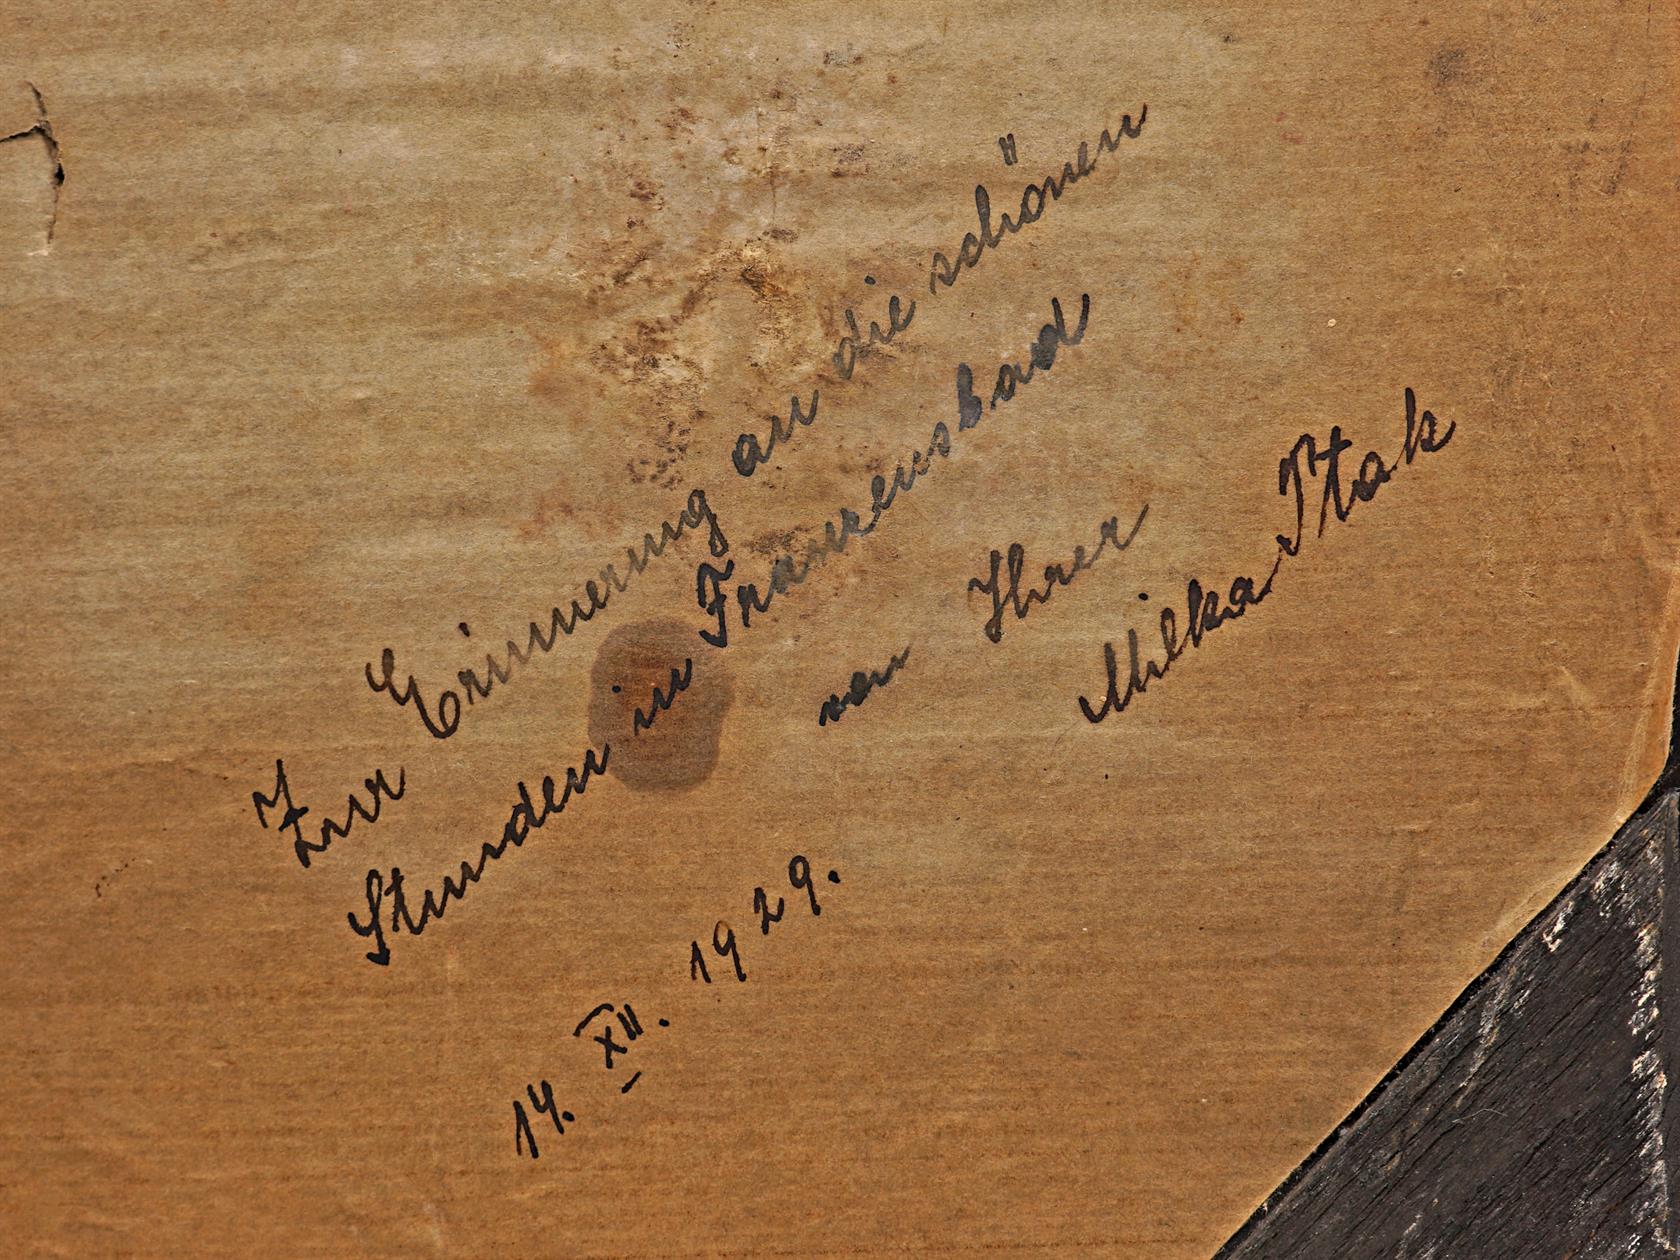 Zur Erinnerung an die schönen
Stunden in Franzensbad
von Ihrer
Milka Ptak
14. XII. 1929.